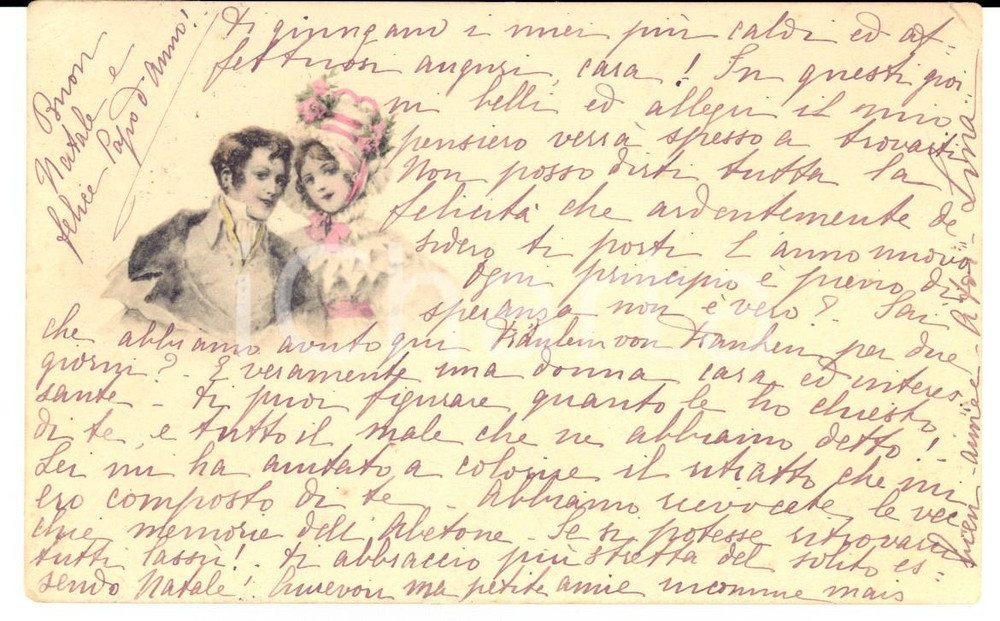 Buon
Natale e
felice Capo d'anno!
Ti giungano i miei più caldi ed af-
fettuosi auguri, cara! In questi gior
ni belli ed allegri il mio
pensiero verrà spesso a trovarti
Non posso dirti tutta la
felicità che ardentemente de
sidero ti porti l'anno nuovo
ogni principio è pieno di
speranza non è vero? Sai
che abbiamo avuto qui Fräulein von Franken per due
giorni? - È veramente una donna cara ed interes
sante - Ti puoi figurare quanto le ho chiesto
di te, e tutto il male che ne abbiamo detto!
Lei mi ha aiutato a colorire il ritratto che mi
ero composto di te. Abbiamo rievocate le vec
chie memorie dell'Abetone. Se si potesse ritrovarci
tutti lassù! Ti abbraccio più stretta del solito es-
sendo Natale! Aurevoir ma petite amie inconnue mais
bien aimée - Lina